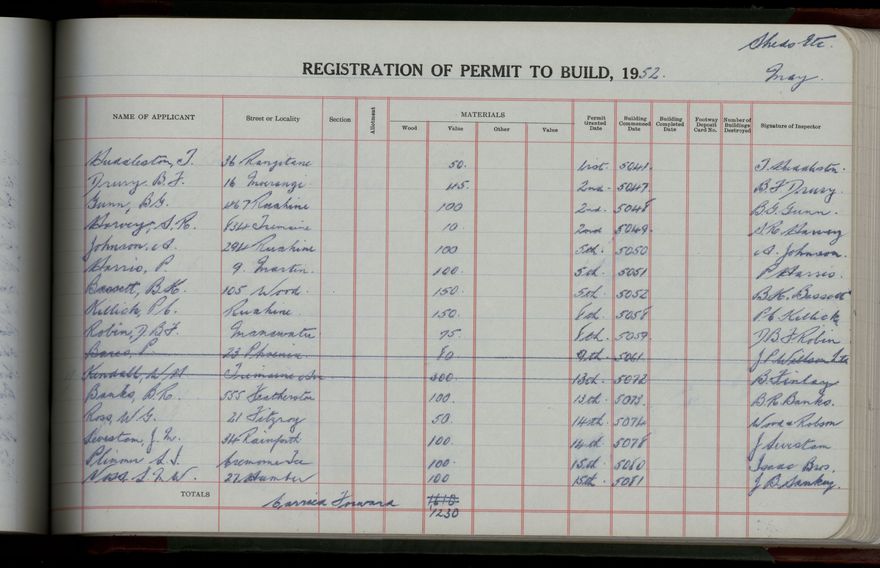 Sheds Etc.
REGISTRATION OF PERMIT TO BUILD, 1952.
May.
NAME OF APPLICANT Street or Locality Section Allotment MATERIALS Permit Granted Date Building Commenced Date Building Completed Date Footway Deposit Card No. Number of Buildings Destroyed Signature of Inspector
Wood Value Other Value
Huddleston, T. 36 Rangitane 50. 1st. 5041. T. Huddleston.
Drury B.F. 16 45. 2nd. 5047. B.F Drury
Gunn, B.G. 467 Ruahine 100 2nd. 5048 B.G. Gunn.
Harvey, S.R. 834 Tremaine 10. 2nd 5049. S.R. Harvey
Johnson, A. 294 Ruahine 100 5th. 5050 A. Johnson.
Harris, P. 9. Martin. 100. 5th. 5051 P Harris.
Bassett, B.K. 105 Wood. 150. 5th. 5052 B.K. Bassett
Killick P.C. Ruahine 150. 8th. 5058 P.C. Killick
Robin, D B.F. Manawatu 75. 8th. 5059. D.B.F Robin
P. 23 Phoenix. 80 9th. 5061
Kendall, W. Tremaine Ave 300. 13th. 5072 B. Finlay
Banks, B.R. 555 Featherston 100. 13th. 5073. B.R Banks.
Ross, W.G. 21 Fitzroy 50. 14th. 5074 Wood & Robson
J.M. 34 Rainforth 100. 14th. 5078 J
S.J. Cremorne Tce 100. 15th. 5080 Isaac Bros.
27 Humber 100 15th. 5081 J B Sankey.
TOTALS Carried Forward 1610
1230